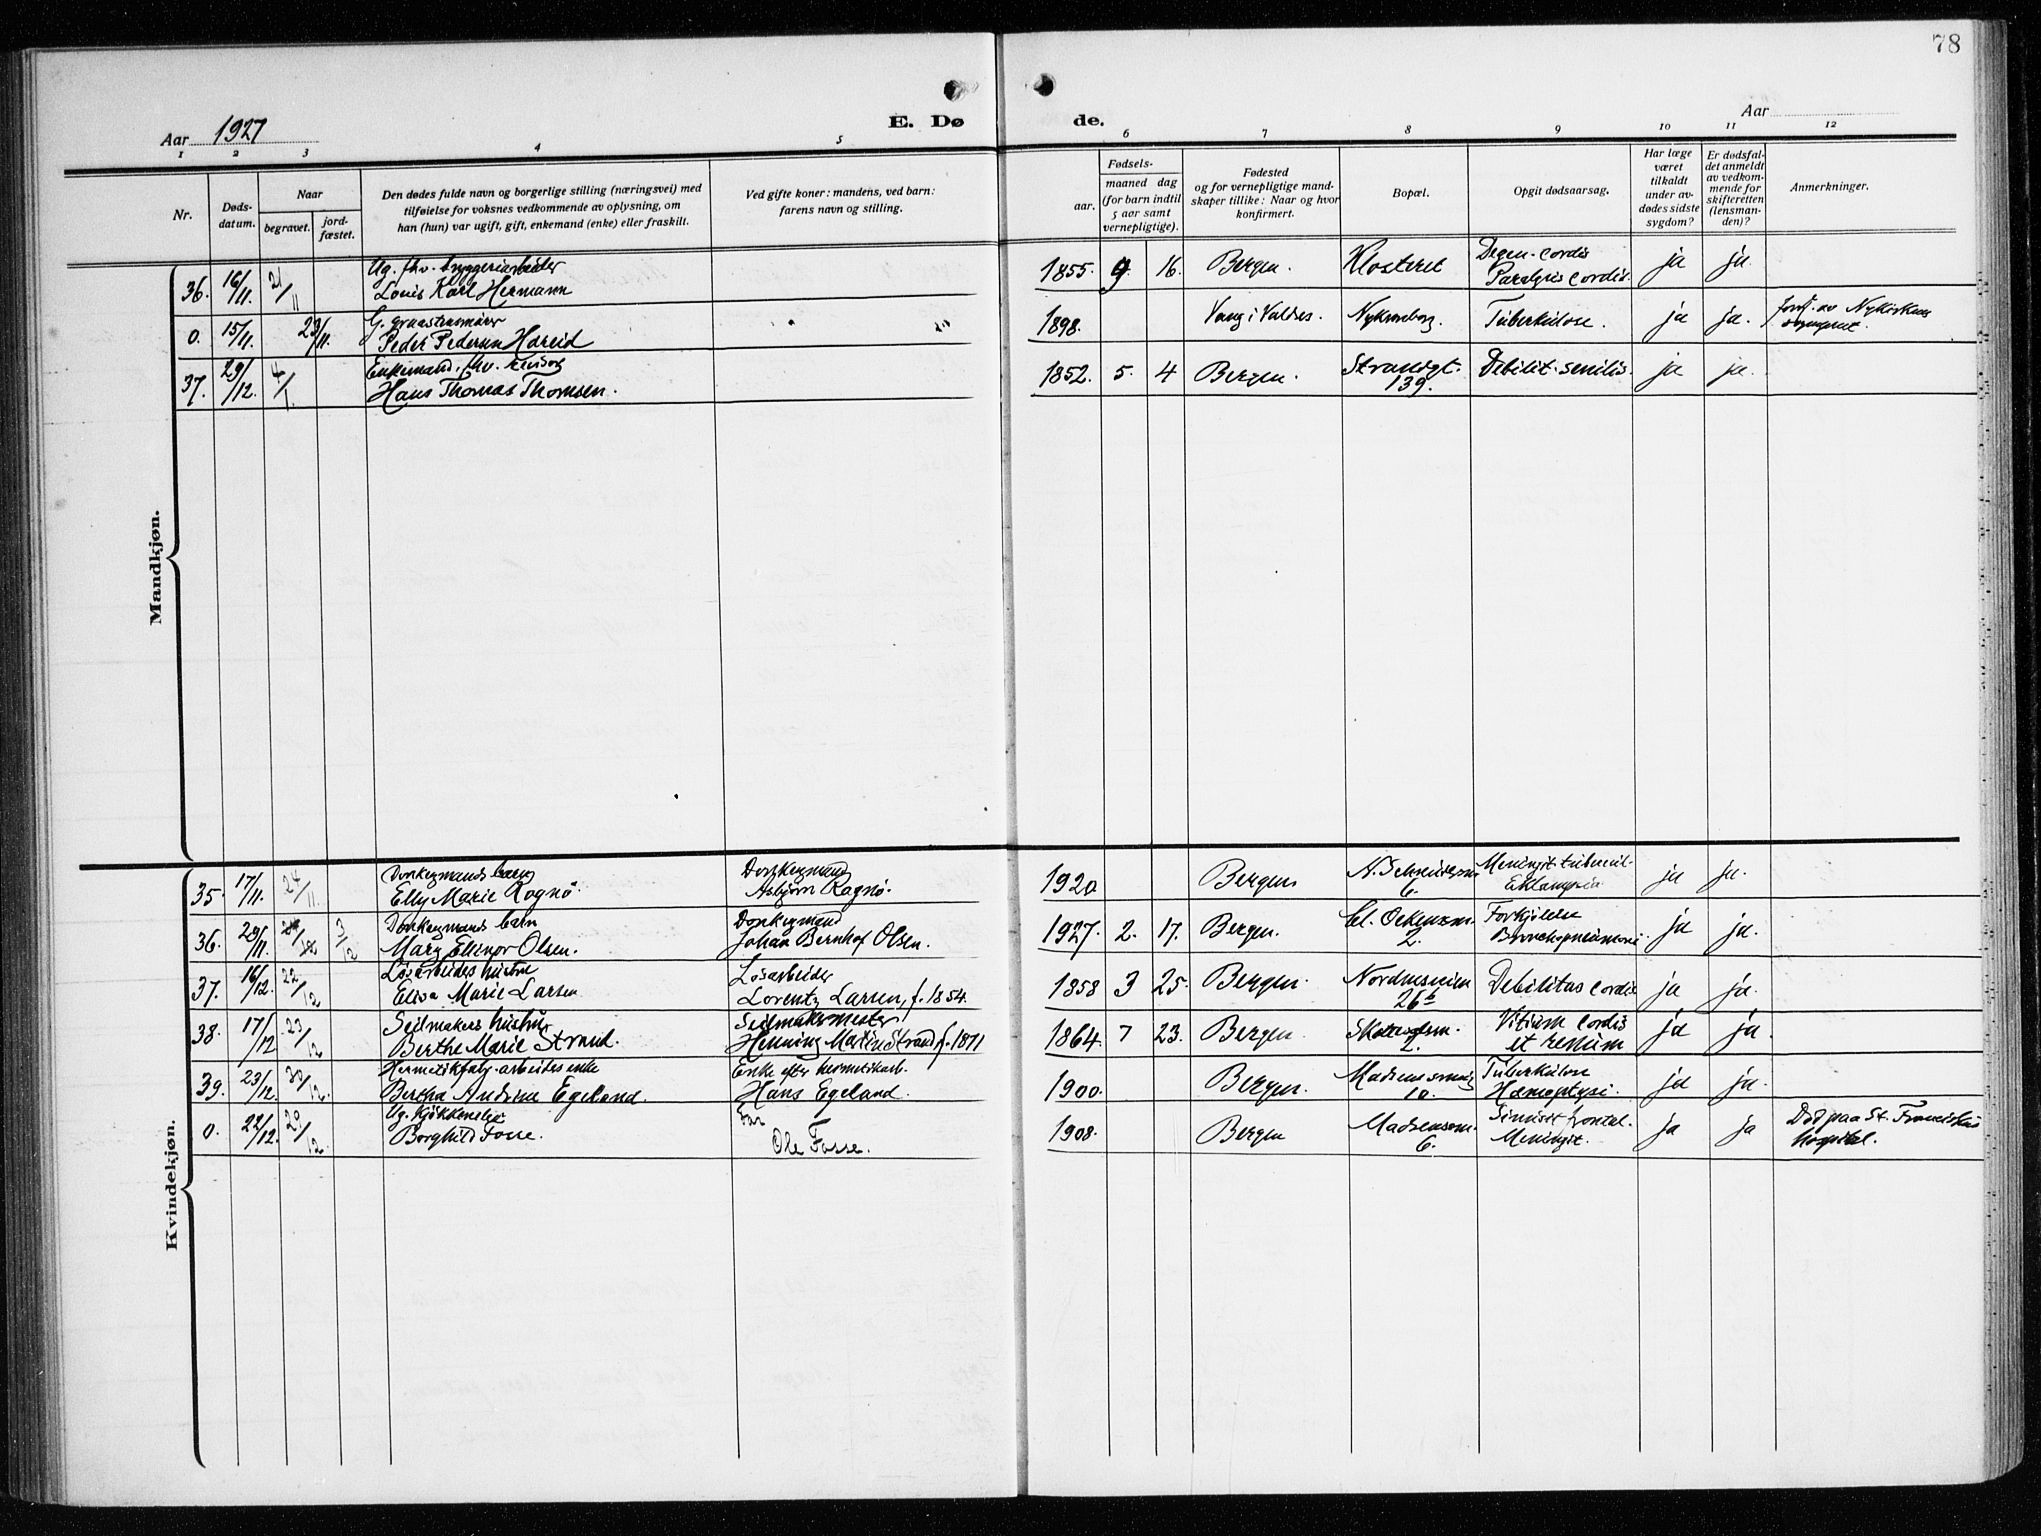 78
Aar 1927
E. Dø de.
Aar
1 2 3 4 5 6 7 8 9 10 11 12
Nr.
Døds-
datum.
Naar
begravet.
jord-
fæstet.
Den dødes fulde navn og borgerlige stilling (næringsvei) med
tilføielse for voksnes vedkommende av oplysning, om
han (hun) var ugift, gift, enkemand (enke) eller fraskilt.
Ved gifte koner: mandens, ved barn:
farens navn og stilling.
Fødsels-
aar.
maaned dag
(for barn indtil
5 aar samt
vernepligtige).
Fødested
og for vernepligtige mand-
skaper tillike: Naar og hvor
konfirmert.
Bopæl.
Opgit dødsaarsag.
Har læge
været
tilkaldt
under av-
dødes sidste
sygdom?
Er dødsfal-
det anmeldt
av vedkom-
mende for
skifteretten
(lensman-
den)?
Anmerkninger.
Mandkjøn.
36. 16/11. 21/11 Ug. fhv. bryggeriarbeider
Louis Karl Hermann
1855. 9. 16. Bergen. Klosteret Degen. cordis
Paralysis cordis. ja ja.
0. 15/11. 23/11. G.
Peder Pedersen Hareid
1898. Vang i Valdres. Nykroneborg. Tuberkulose. ja ja. Jordf. av Nykirkens
sogneprest.
37. 29/12. 4/1. Enkemand, fhv.
Hans Thomas Thomsen.
1852. 5. 4 Bergen. Strandgt.
139. Debilit. senilis ja ja.
Kvindekjøn.
35. 17/11. 24/11 Donkeymands barn
Elly Marie Rognø.
Donkeymand
Asbjørn Rognø.
1920 Bergen
6. Meningit. tubercul-
Eklampsia ja ja.
36. 29/11. 3/12 Donkeymands barn
Mary Elinor Olsen.
Donkeymand
Johan Bernhof Olsen.
1927. 2. 17. Bergen. Cl. Ockensm.
2. Forkjølelse
Bronchopneumoni ja ja.
37. 16/12. 22/12 Løsarbeides hustru
Elisa Marie Larsen
Løsarbeider
Lorentz Larsen, f. 1854.
1858 3 25. Bergen. Nordnesveien
26b Debilitas cordis ja ja.
38. 17/12 23/12 Seilmakers hustru
Berthe Marie Strand.
Seilmakermester
Henning Martin Strand f. 1871
1864. 7 23. Bergen
2. Vitium cordis
et renum ja ja.
39. 23/12. 30/12. Hermetikfabr. arbeides enke
Bertha Andrine Egeland.
Enke efter hermetikarb.
Hans Egeland.
1900. Bergen. Madsensmug
10. Tuberkulose
Hæmoptysi. ja ja.
0. 22/12. 29/12 Ug. kjøkkenelev
Borghild Fosse.
Far
Ole Fosse.
1908. Bergen Madsensm.
6. Sinusit frontal.
Meningit. ja ja Død paa St. Franciskus
hospital.